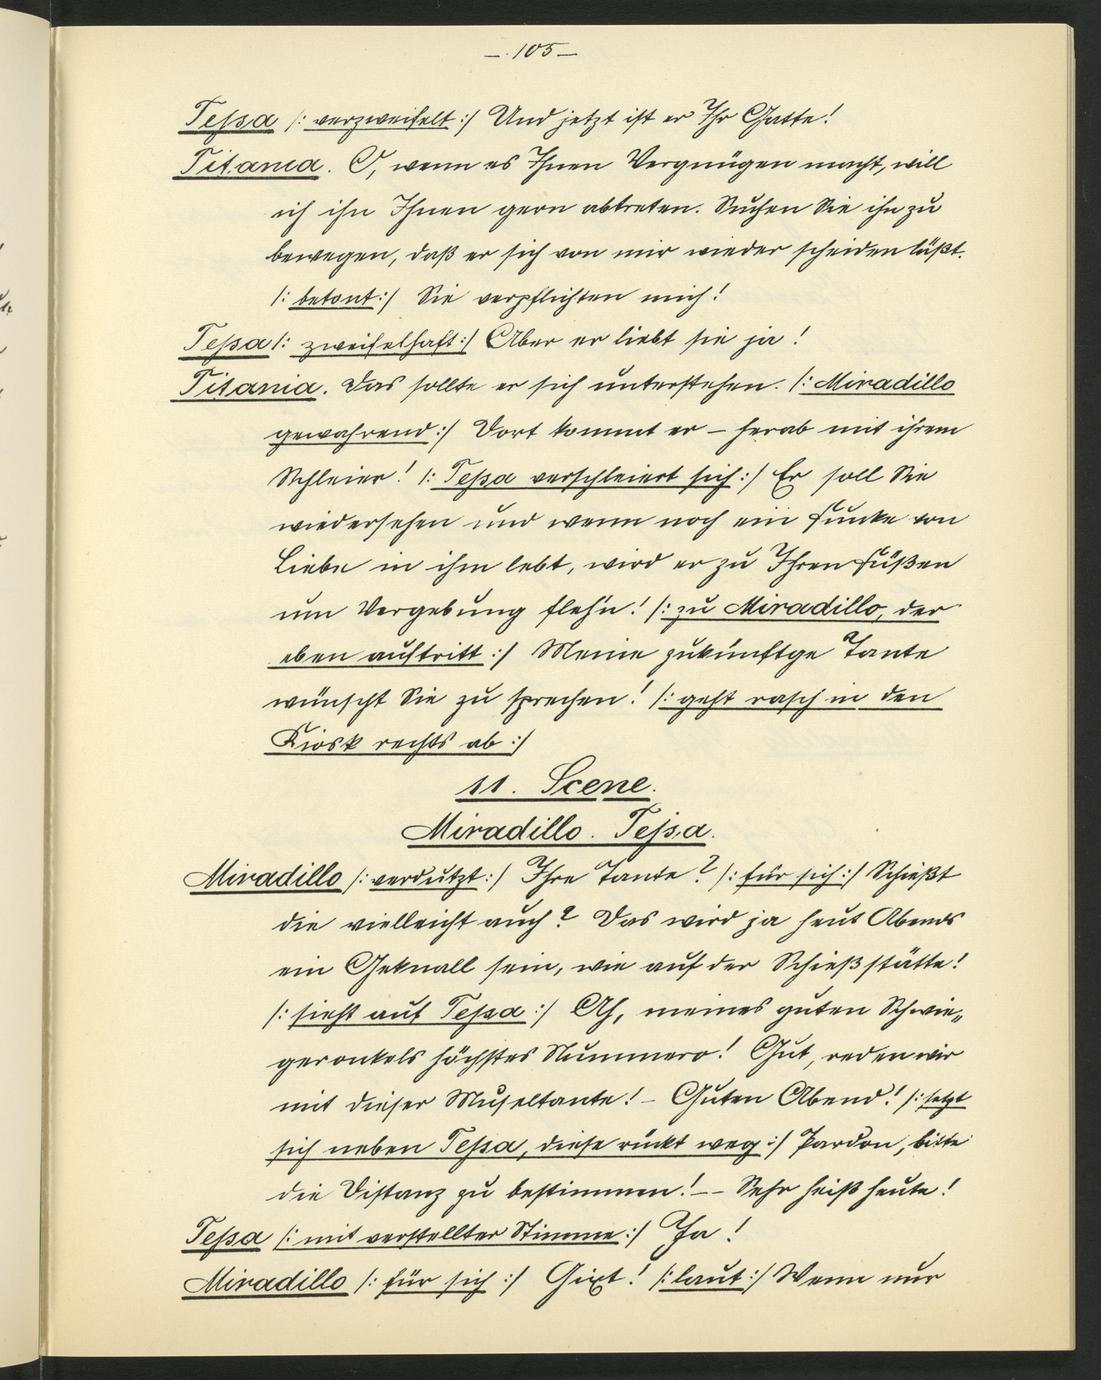 — 105 —
Teßa /: verzweifelt :/ Und jetzt ist er Ihr Gatte!
Titania. O, wenn es Ihnen Vergnügen macht, will
ich ihn Ihnen gern abtreten. Suchen Sie ihn zu
bewegen, daß er sich von mir wieder scheiden läßt.
/: betont :/ Sie verpflichten mich!
Teßa /: zweifelhaft :/ Aber er liebt sie ja!
Titania. Das sollte er sich unterstehen. /: Miradillo
gewahrend :/ Dort kommt er – herab mit ihrem
Schleier! /: Teßa verschleiert sich :/ Er soll Sie
wiedersehen und wenn noch ein Funke von
Liebe in ihm lebt, wird er zu Ihren Füßen
um Vergebung fleh'n! /: zu Miradillo, der
eben auftritt :/ Meine zukünftge Tante
wünscht Sie zu sprechen! /: geht rasch in den
Kiosk rechts ab :/
11. Scene.
Miradillo. Teßa.
Miradillo /: verdutzt :/ Ihre Tante? /: für sich :/ Schießt
die vielleicht auch? Das wird ja heut Abends
ein Geknall sein, wie auf der Schießstätte!
/: sieht auf Teßa :/ Ah, meines guten Schwie-
geronkels höchstes Nummero! Gut, reden wir
mit dieser Museltante! – Guten Abend! /: setzt
sich neben Teßa, diese rückt weg :/ Pardon, bitte
die Distanz zu bestimmen! – – Sehr heiß heute!
Teßa /: mit verstellter Stimme :/ Ja!
Miradillo /: für sich :/ Gixt! /: laut :/ Wenn nur